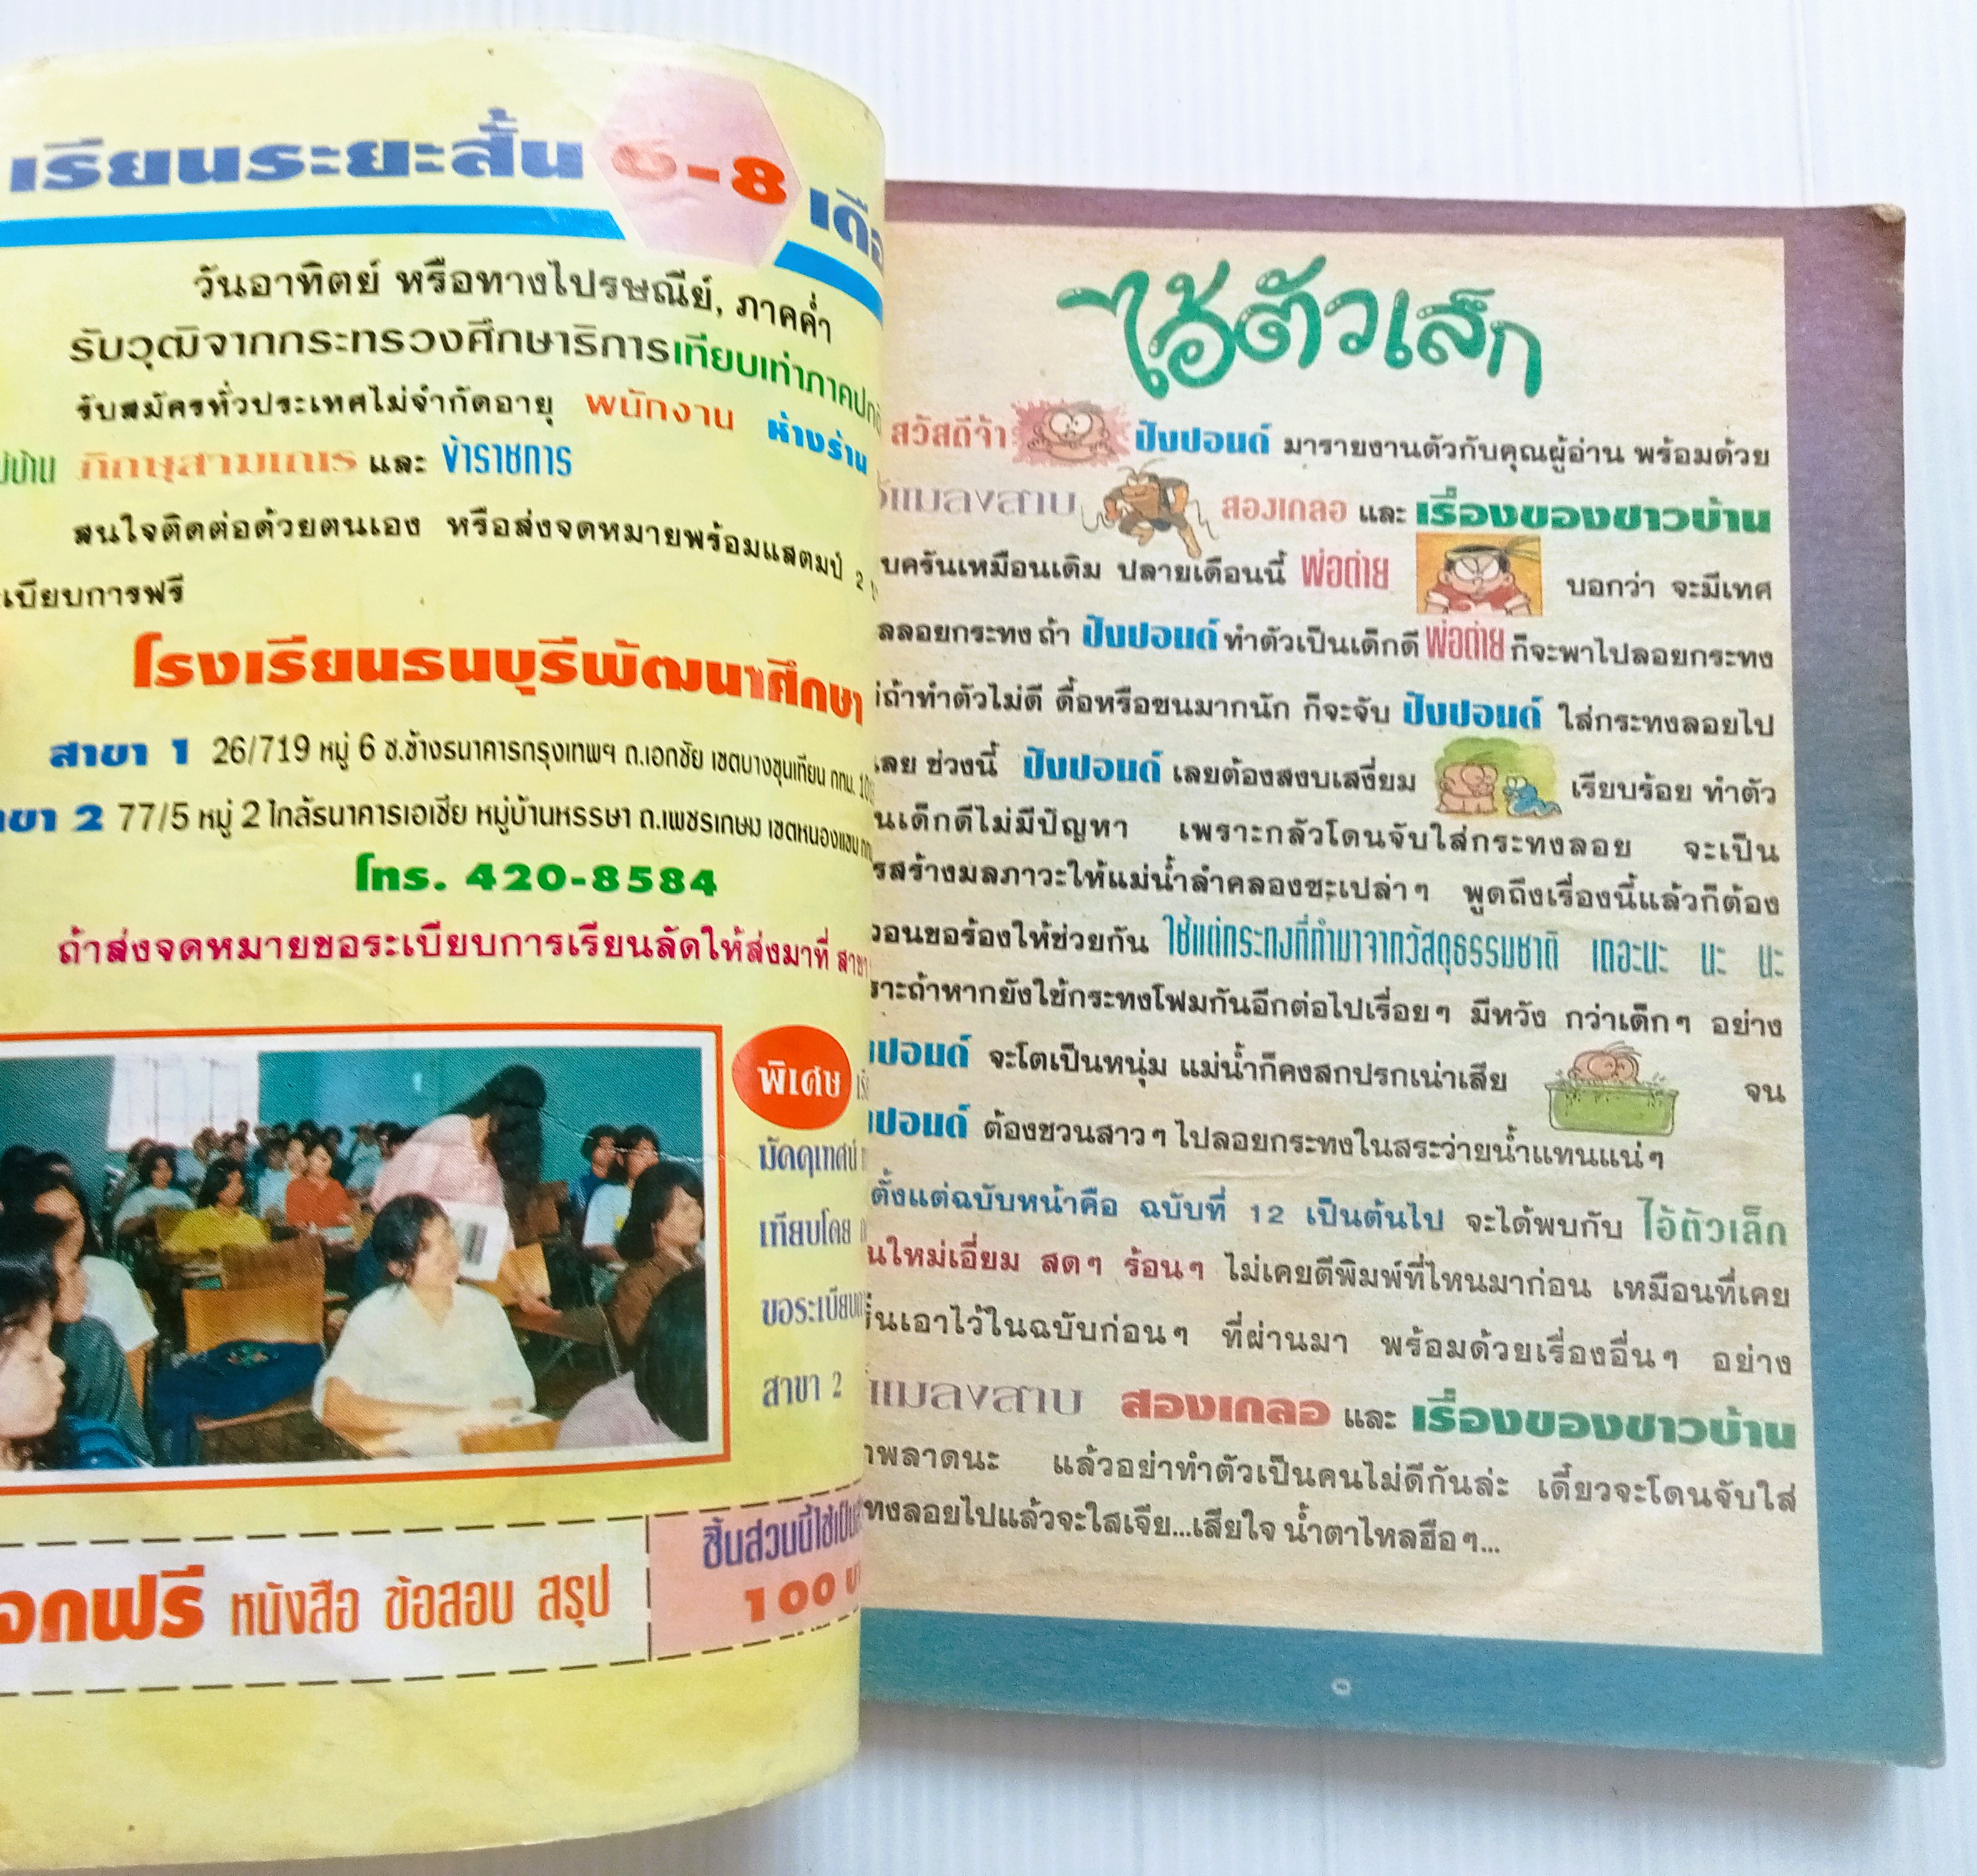 เรียนระยะสั้น 6-8
วันอาทิตย์ หรือทางไปรษณีย์, ภาคค่ำ
รับวุฒิจากกระทรวงศึกษาธิการเทียบเท่าภาคปกติ
รับสมัครทั่วประเทศไม่จำกัดอายุ พนักงาน ห้างร้าน
ภิกษุสามเณร และ ข้าราชการ
สนใจติดต่อด้วยตนเอง หรือส่งจดหมายพร้อมแสตมป์ 2
เบียบการฟรี
โรงเรียนธนบุรีพัฒนาศึกษา
สาขา 1 26/719 หมู่ 6 ซ.ข้างธนาคารกรุงเทพฯ ถ.เอกชัย เขตบางขุนเทียน กทม.
ขา 2 77/5 หมู่ 2 ใกล้ธนาคารเอเชีย หมู่บ้านหรรษา ถ.เพชรเกษม เขตหนองแขม
โทร. 420-8584
ถ้าส่งจดหมายขอระเบียบการเรียนลัดให้ส่งมาที่ สาขา
พิเศษ
มัคคุเทศน์
เทียบโดย
ขอระเบียบ
สาขา 2
จกฟรี หนังสือ ข้อสอบ สรุป
ชิ้นส่วนนี้ใช้เป็น
100
ไอ้ตัวเล็ก
สวัสดีจ้า ปังปอนด์ มารายงานตัวกับคุณผู้อ่าน พร้อมด้วย
แมลงสาบ สองเกลอ และ เรื่องของชาวบ้าน
บครันเหมือนเดิม ปลายเดือนนี้ พ่อต่าย บอกว่า จะมีเทศ
ลลอยกระทง ถ้า ปังปอนด์ ทำตัวเป็นเด็กดี พ่อต่าย ก็จะพาไปลอยกระทง
ถ้าทำตัวไม่ดี ดื้อหรือซนมากนัก ก็จะจับ ปังปอนด์ ใส่กระทงลอยไป
เลย ช่วงนี้ ปังปอนด์ เลยต้องสงบเสงี่ยม เรียบร้อย ทำตัว
นเด็กดีไม่มีปัญหา เพราะกลัวโดนจับใส่กระทงลอย จะเป็น
รสร้างมลภาวะให้แม่น้ำลำคลองซะเปล่าๆ พูดถึงเรื่องนี้แล้วก็ต้อง
วอนขอร้องให้ช่วยกัน ใช้แต่กระทงที่ทำมาจากวัสดุธรรมชาติ เถอะนะ นะ นะ
ราะถ้าหากยังใช้กระทงโฟมกันอีกต่อไปเรื่อยๆ มีหวัง กว่าเด็กๆ อย่าง
ปอนด์ จะโตเป็นหนุ่ม แม่น้ำก็คงสกปรกเน่าเสีย จน
ปอนด์ ต้องชวนสาวๆ ไปลอยกระทงในสระว่ายน้ำแทนแน่ๆ
ตั้งแต่ฉบับหน้าคือ ฉบับที่ 12 เป็นต้นไป จะได้พบกับ ไอ้ตัวเล็ก
นใหม่เอี่ยม สดๆ ร้อนๆ ไม่เคยตีพิมพ์ที่ไหนมาก่อน เหมือนที่เคย
นเอาไว้ในฉบับก่อนๆ ที่ผ่านมา พร้อมด้วยเรื่องอื่นๆ อย่าง
แมลงสาบ สองเกลอ และ เรื่องของชาวบ้าน
าพลาดนะ แล้วอย่าทำตัวเป็นคนไม่ดีกันล่ะ เดี๋ยวจะโดนจับใส่
ทงลอยไปแล้วจะใสเจีย...เสียใจ น้ำตาไหลฮือๆ...